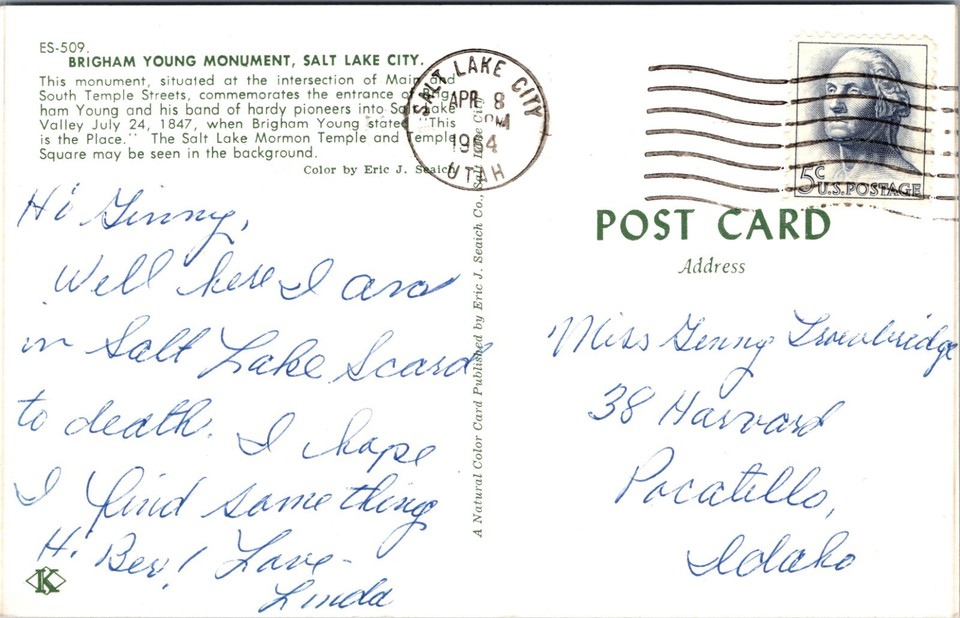 ES-509.
BRIGHAM YOUNG MONUMENT, SALT LAKE CITY.
This monument, situated at the intersection of Main and
South Temple Streets, commemorates the entrance of Brig-
ham Young and his band of hardy pioneers into Salt Lake
Valley July 24, 1847, when Brigham Young stated "This
is the Place." The Salt Lake Mormon Temple and Temple
Square may be seen in the background.
Color by Eric J. Seaich
SALT LAKE CITY
APR 8
PM
1964
UTAH
5c
U.S. POSTAGE
POST CARD
Address
A Natural Color Card Published by Eric J. Seaich Co., Salt Lake City
Hi Ginny,
Well here I am
in Salt Lake Scard
to death. I hope
I find something
Hi Bev! Love-
Linda
Miss Genny Trowbridge
38 Harvard
Pocatello,
Idaho
K